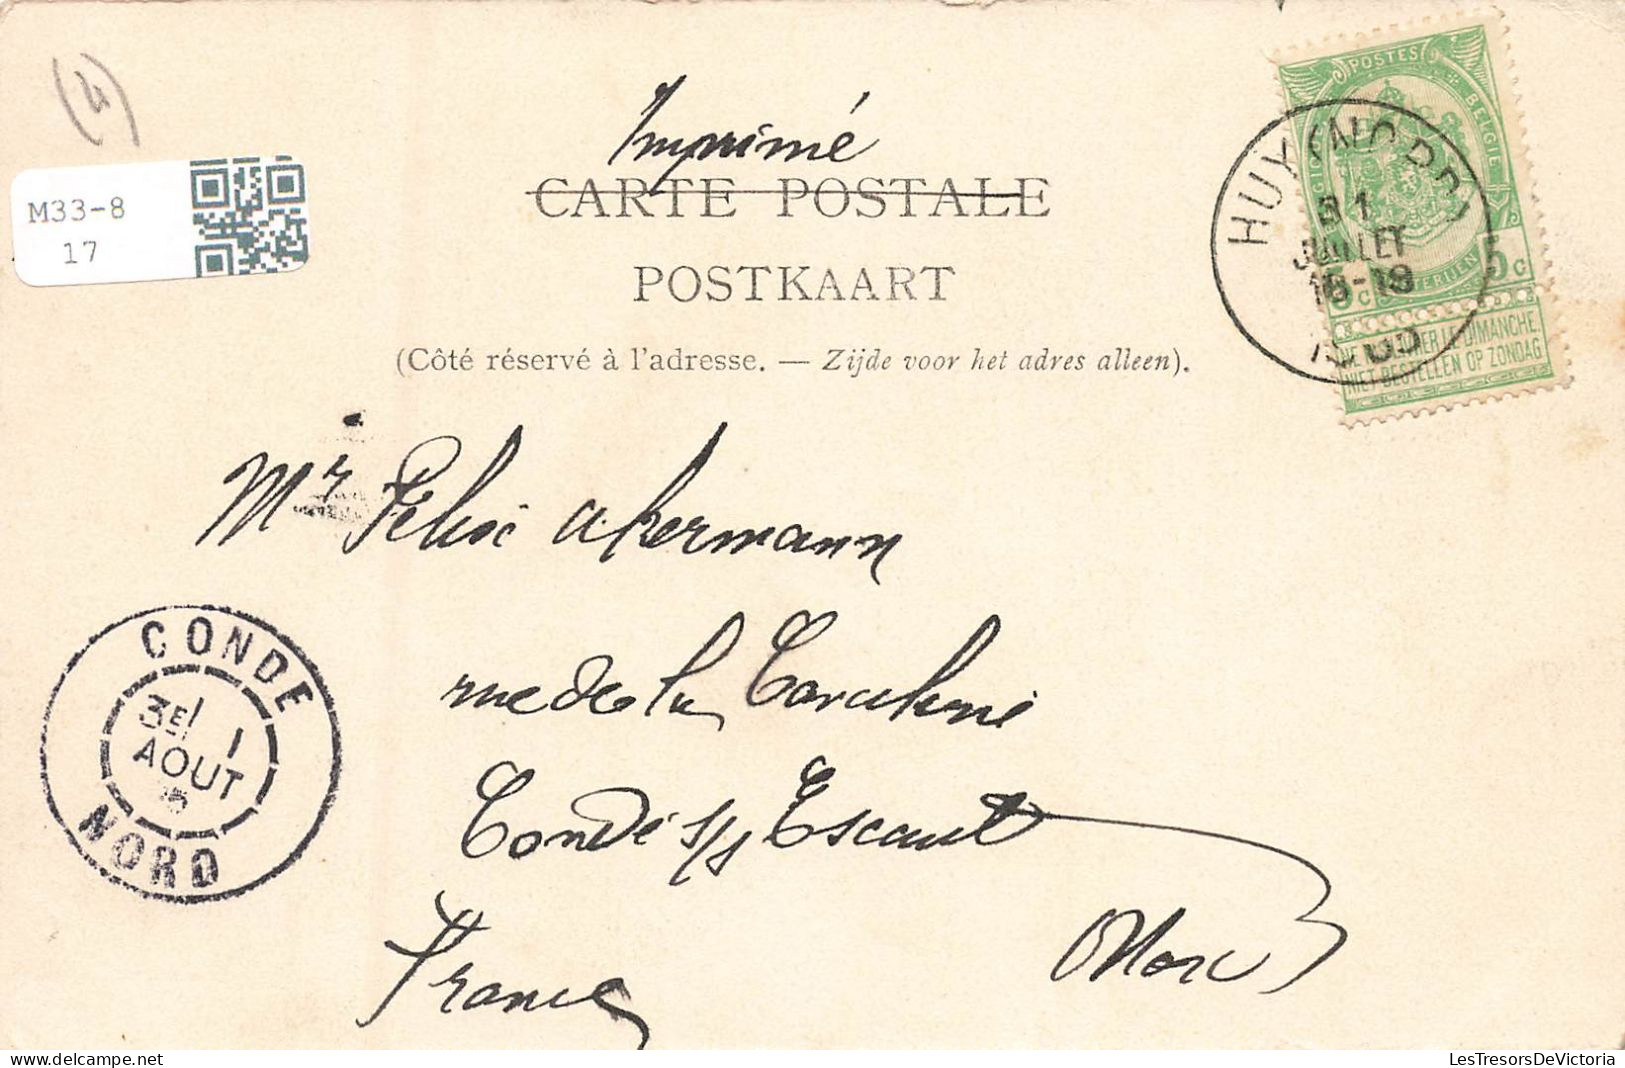 (4)
M33-8
17
Imprimé
CARTE POSTALE
POSTKAART
(Côté réservé à l'adresse. — Zijde voor het adres alleen).
POSTES
BELGIË
5c 5c
DIMANCHE
NIET BESTELLEN OP ZONDAG
HUY (NORD)
31
JUILLET
18-19
Mr Félix Akermann
rue de la
Condé s/ Escaut
Nord
France
CONDE
3E 1
AOUT
NORD
LesTresorsDeVictoria